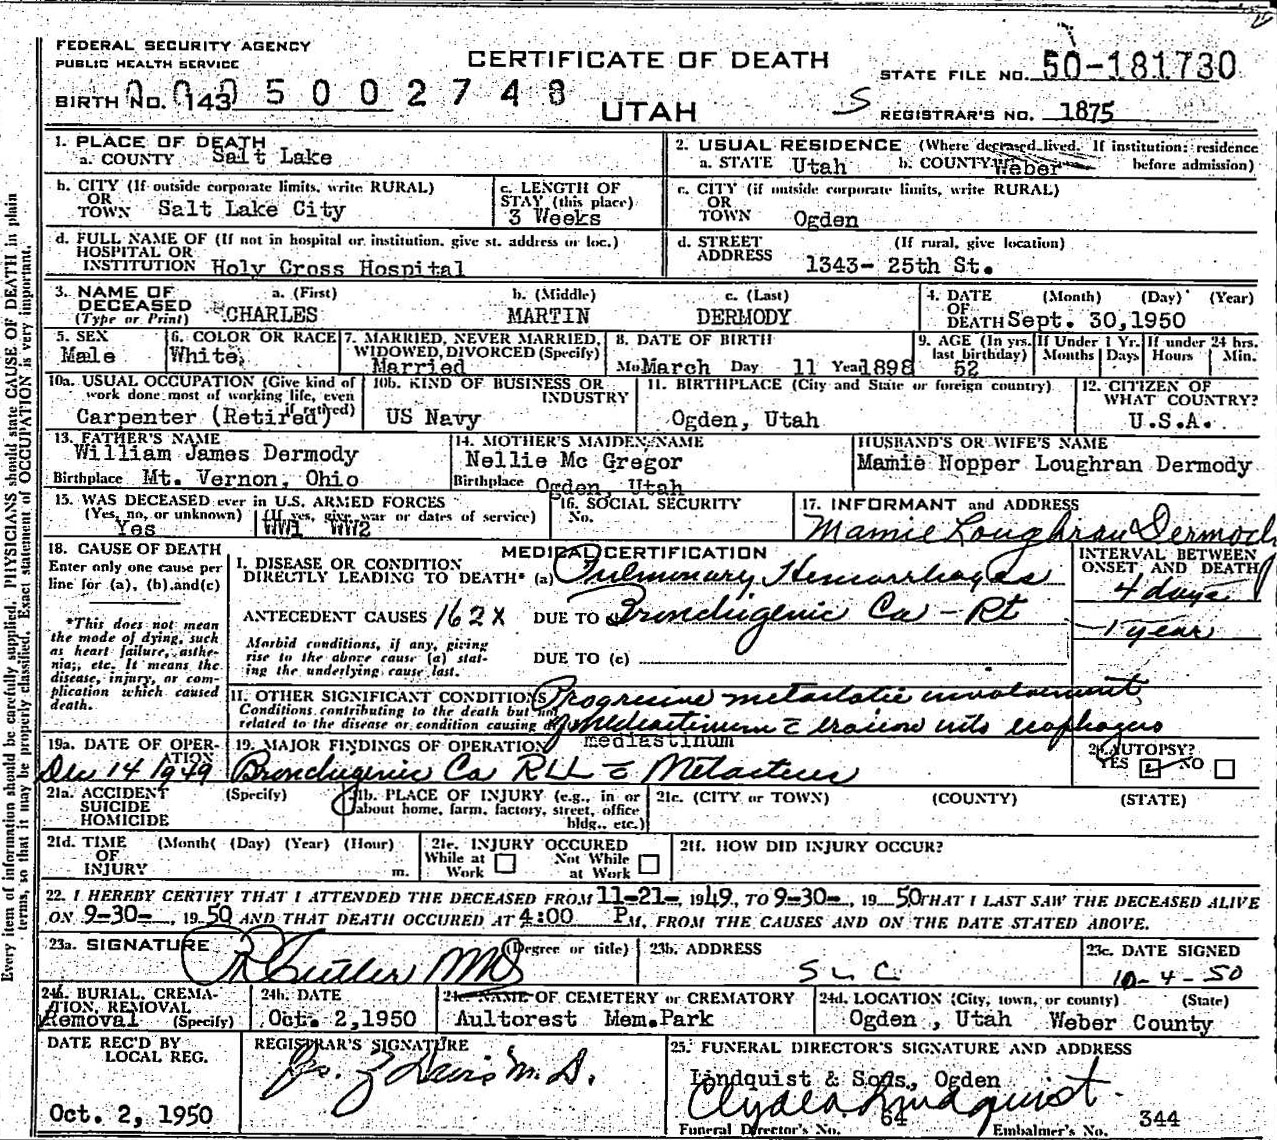 FEDERAL SECURITY AGENCY
PUBLIC HEALTH SERVICE
CERTIFICATE OF DEATH
STATE FILE NO. 50-181730
BIRTH NO. 143 5002748
UTAH
S
REGISTRAR'S NO. 1875
Every item of information should be carefully supplied, PHYSICIANS should state CAUSE OF DEATH in plain
terms, so that it may be properly classified. Exact statement of OCCUPATION is very important.
1. PLACE OF DEATH
a. COUNTY Salt Lake
2. USUAL RESIDENCE (Where deceased lived. If institution: residence
a. STATE Utah b. COUNTY Weber before admission)
b. CITY (If outside corporate limits, write RURAL)
OR
TOWN Salt Lake City
c. LENGTH OF
STAY (this place)
3 Weeks
c. CITY (if outside corporate limits, write RURAL)
OR
TOWN Ogden
d. FULL NAME OF (If not in hospital or institution, give st. address or loc.)
HOSPITAL OR
INSTITUTION Holy Cross Hospital
d. STREET (If rural, give location)
ADDRESS
1343- 25th St.
3. NAME OF a. (First) b. (Middle) c. (Last)
DECEASED
(Type or Print) CHARLES MARTIN DERMODY
4. DATE (Month) (Day) (Year)
OF
DEATH Sept. 30,1950
5. SEX
Male
6. COLOR OR RACE
White
7. MARRIED, NEVER MARRIED,
WIDOWED, DIVORCED (Specify)
Married
8. DATE OF BIRTH
Mo March Day 11 Year 1898
9. AGE (In yrs. last birthday)
52
If Under 1 Yr. Months Days
If under 24 hrs. Hours Min.
10a. USUAL OCCUPATION (Give kind of
work done most of working life, even
if retired)
Carpenter (Retired)
10b. KIND OF BUSINESS OR
INDUSTRY
US Navy
11. BIRTHPLACE (City and State or foreign country)
Ogden, Utah
12. CITIZEN OF
WHAT COUNTRY?
U.S.A.
13. FATHER'S NAME
William James Dermody
Birthplace Mt. Vernon, Ohio
14. MOTHER'S MAIDEN NAME
Nellie Mc Gregor
Birthplace Ogden, Utah
HUSBAND'S OR WIFE'S NAME
Mamie Nopper Loughran Dermody
15. WAS DECEASED ever in U.S. ARMED FORCES
(Yes, no, or unknown) (If yes, give war or dates of service)
Yes WW1 WW2
16. SOCIAL SECURITY
No.
17. INFORMANT and ADDRESS
Mamie Loughran Dermody
18. CAUSE OF DEATH
Enter only one cause per
line for (a), (b) and (c)
*This does not mean
the mode of dying, such
as heart failure, asthe-
nia, etc. It means the
disease, injury, or com-
plication which caused
death.
MEDICAL CERTIFICATION
INTERVAL BETWEEN
ONSET, AND DEATH
I. DISEASE OR CONDITION
DIRECTLY LEADING TO DEATH* (a) Pulmonary Hemorrhages
4 days
ANTECEDENT CAUSES 162X DUE TO Bronchigenic Ca - Rt
1 year
Morbid conditions, if any, giving
rise to the above cause (a) stat-
ing the underlying cause last.
DUE TO (c)
II. OTHER SIGNIFICANT CONDITIONS Progressive metastatic involvement
Conditions contributing to the death but not
related to the disease or condition causing of mediastinum c̄ erosion into esophagus
mediastinum
19a. DATE OF OPER-
ATION
Dec 14 1949
19. MAJOR FINDINGS OF OPERATION
Bronchigenic Ca RLL c̄ Metastases
20. AUTOPSY?
YES NO
21a. ACCIDENT (Specify)
SUICIDE
HOMICIDE
21b. PLACE OF INJURY (e.g., in or
about home, farm, factory, street, office
bldg., etc.)
21c. (CITY or TOWN) (COUNTY) (STATE)
21d. TIME (Month) (Day) (Year) (Hour)
OF
INJURY m.
21e. INJURY OCCURED
While at Work Not While at Work
21f. HOW DID INJURY OCCUR?
22. I HEREBY CERTIFY THAT I ATTENDED THE DECEASED FROM 11-21-, 1949, TO 9-30-, 1950 THAT I LAST SAW THE DECEASED ALIVE
ON 9-30-, 1950 AND THAT DEATH OCCURED AT 4:00 P M, FROM THE CAUSES AND ON THE DATE STATED ABOVE.
23a. SIGNATURE (Degree or title)
Cutler MD
23b. ADDRESS
SLC
23c. DATE SIGNED
10-4-50
24a. BURIAL, CREMA-
TION, REMOVAL
Removal (Specify)
24b. DATE
Oct. 2,1950
24c. NAME OF CEMETERY or CREMATORY
Aultorest Mem.Park
24d. LOCATION (City, town, or county) (State)
Ogden , Utah Weber County
DATE REC'D BY
LOCAL REG.
Oct. 2, 1950
REGISTRAR'S SIGNATURE
Davis M.D.
25. FUNERAL DIRECTOR'S SIGNATURE AND ADDRESS
Lindquist & Sons, Ogden
Clyde Lindquist
64 344
Funeral Director's No. Embalmer's No.